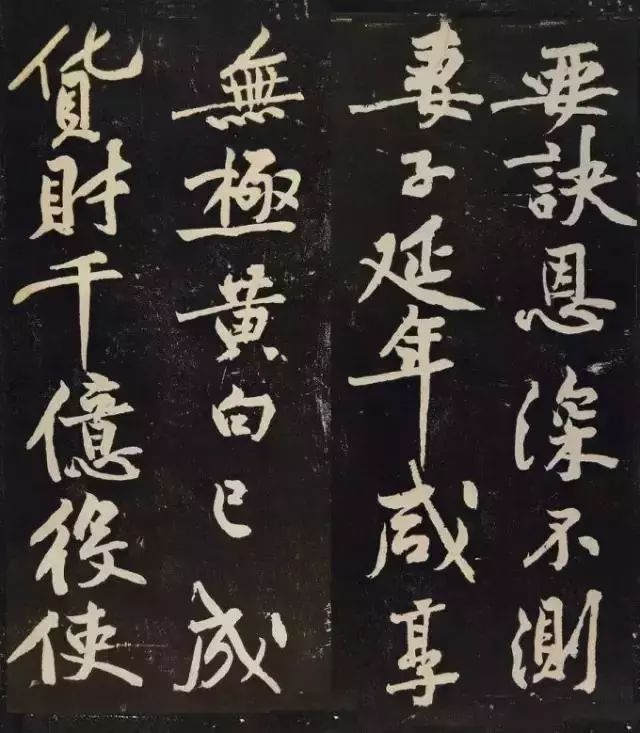 要訣恩深不測
妻子延年咸享
無極黃白已成
貨財千億役使